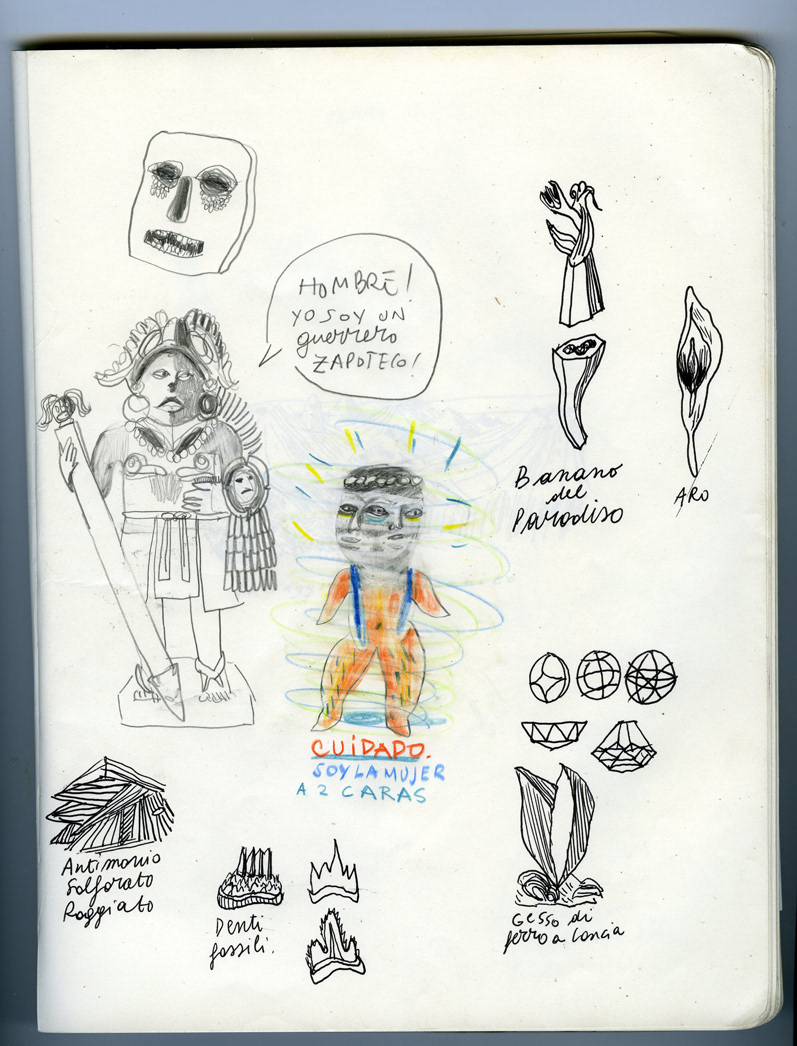 HOMBRE!
YO SOY UN
guerrero
ZAPOTECO!
Banano
del
Paradiso
ARO
CUIDADO.
SOY LA MUJER
A 2 CARAS
Antimonio
Solforato
Raggiato
Denti
fossili.
Gesso di
ferro a lancia